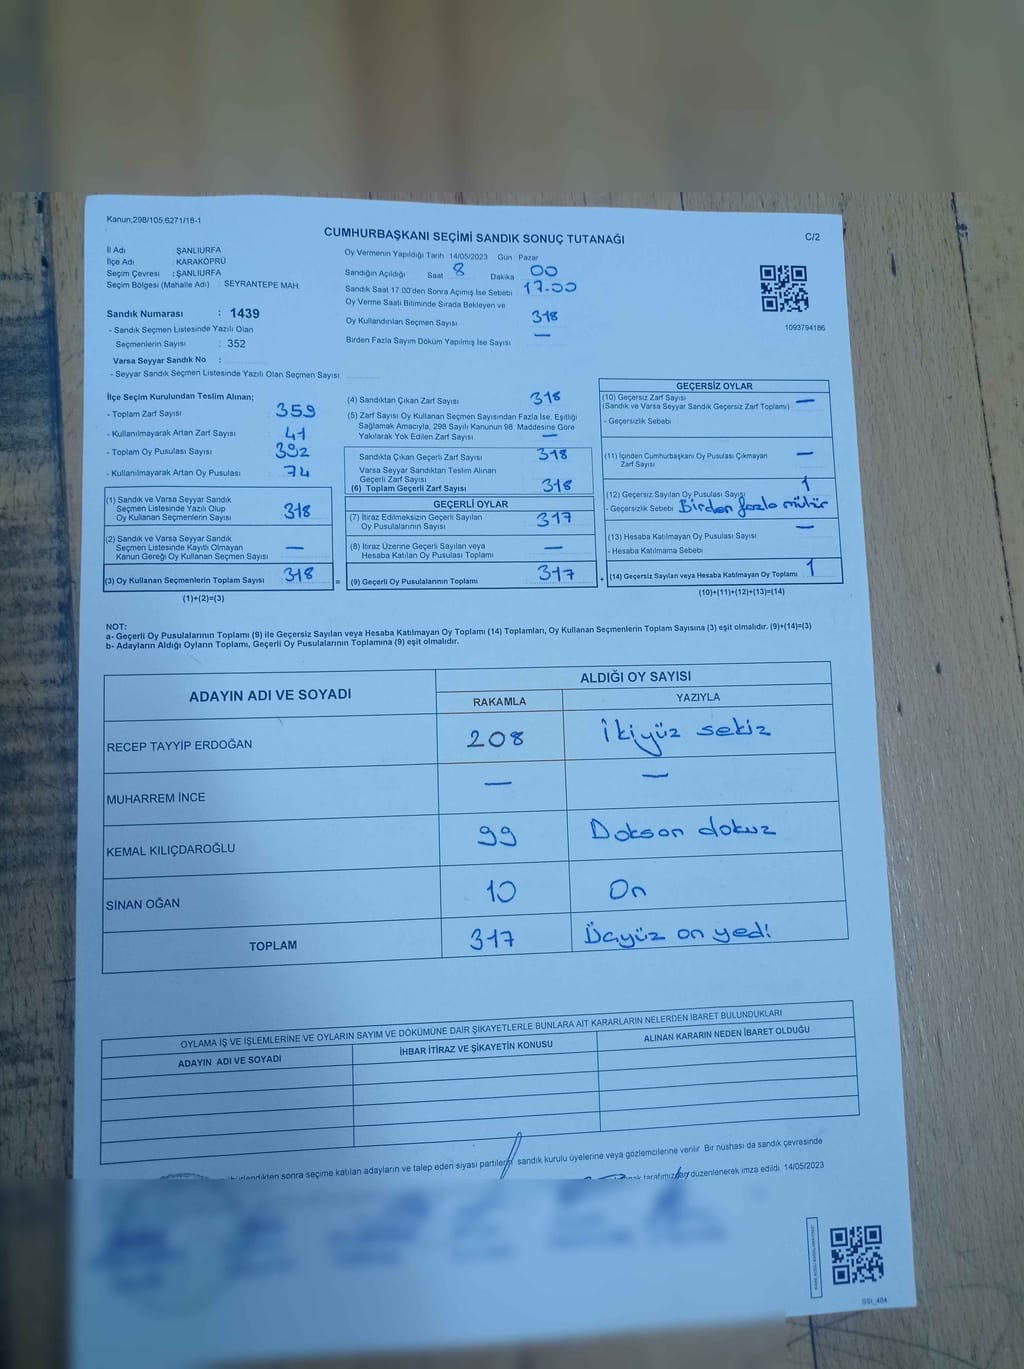 Kanun;298/105,6271/18-1
CUMHURBAŞKANI SEÇİMİ SANDIK SONUÇ TUTANAĞI
C/2
İl Adı : ŞANLIURFA
İlçe Adı : KARAKÖPRÜ
Seçim Çevresi : ŞANLIURFA
Seçim Bölgesi (Mahalle Adı) : SEYRANTEPE MAH.
Oy Vermenin Yapıldığı Tarih 14/05/2023 Gün : Pazar
Sandığın Açıldığı Saat 8 Dakika 00
Sandık Saat 17.00'den Sonra Açılmış İse Sebebi 17.00
Oy Verme Saati Bitiminde Sırada Bekleyen ve
Oy Kullandırılan Seçmen Sayısı 318
Birden Fazla Sayım Döküm Yapılmış İse Sayısı —
1093794186
Sandık Numarası : 1439
- Sandık Seçmen Listesinde Yazılı Olan
Seçmenlerin Sayısı : 352
Varsa Seyyar Sandık No :
- Seyyar Sandık Seçmen Listesinde Yazılı Olan Seçmen Sayısı
İlçe Seçim Kurulundan Teslim Alınan;
- Toplam Zarf Sayısı 359
- Kullanılmayarak Artan Zarf Sayısı 41
- Toplam Oy Pusulası Sayısı 392
- Kullanılmayarak Artan Oy Pusulası 74
(1) Sandık ve Varsa Seyyar Sandık
Seçmen Listesinde Yazılı Olup
Oy Kullanan Seçmenlerin Sayısı 318
(2) Sandık ve Varsa Seyyar Sandık
Seçmen Listesinde Kayıtlı Olmayan
Kanun Gereği Oy Kullanan Seçmen Sayısı —
(3) Oy Kullanan Seçmenlerin Toplam Sayısı 318
(1)+(2)=(3)
(4) Sandıktan Çıkan Zarf Sayısı 318
(5) Zarf Sayısı Oy Kullanan Seçmen Sayısından Fazla İse, Eşitliği
Sağlamak Amacıyla, 298 Sayılı Kanunun 98. Maddesine Göre
Yakılarak Yok Edilen Zarf Sayısı —
Sandıkta Çıkan Geçerli Zarf Sayısı 318
Varsa Seyyar Sandıktan Teslim Alınan
Geçerli Zarf Sayısı
(6) Toplam Geçerli Zarf Sayısı 318
GEÇERLİ OYLAR
(7) İtiraz Edilmeksizin Geçerli Sayılan
Oy Pusulalarının Sayısı 317
(8) İtiraz Üzerine Geçerli Sayılan veya
Hesaba Katılan Oy Pusulası Toplamı —
= (9) Geçerli Oy Pusulalarının Toplamı 317
GEÇERSİZ OYLAR
(10) Geçersiz Zarf Sayısı —
(Sandık ve Varsa Seyyar Sandık Geçersiz Zarf Toplamı)
- Geçersizlik Sebebi
(11) İçinden Cumhurbaşkanı Oy Pusulası Çıkmayan
Zarf Sayısı —
(12) Geçersiz Sayılan Oy Pusulası Sayısı 1
- Geçersizlik Sebebi Birden fazla mühür
(13) Hesaba Katılmayan Oy Pusulası Sayısı —
- Hesaba Katılmama Sebebi
+ (14) Geçersiz Sayılan veya Hesaba Katılmayan Oy Toplamı 1
(10)+(11)+(12)+(13)=(14)
NOT:
a- Geçerli Oy Pusulalarının Toplamı (9) ile Geçersiz Sayılan veya Hesaba Katılmayan Oy Toplamı (14) Toplamları, Oy Kullanan Seçmenlerin Toplam Sayısına (3) eşit olmalıdır. (9)+(14)=(3)
b- Adayların Aldığı Oyların Toplamı, Geçerli Oy Pusulalarının Toplamına (9) eşit olmalıdır.
ADAYIN ADI VE SOYADI
ALDIĞI OY SAYISI
RAKAMLA YAZIYLA
RECEP TAYYİP ERDOĞAN 208 İkiyüz sekiz
MUHARREM İNCE — —
KEMAL KILIÇDAROĞLU 99 Doksan dokuz
SİNAN OĞAN 10 On
TOPLAM 317 Üçyüz on yedi
OYLAMA İŞ VE İŞLEMLERİNE VE OYLARIN SAYIM VE DÖKÜMÜNE DAİR ŞİKAYETLERLE BUNLARA AİT KARARLARIN NELERDEN İBARET BULUNDUKLARI
ADAYIN ADI VE SOYADI İHBAR İTİRAZ VE ŞİKAYETİN KONUSU ALINAN KARARIN NEDEN İBARET OLDUĞU
sonra seçime katılan adayların ve talep eden siyasi partilerin sandık kurulu üyelerine veya gözlemcilerine verilir. Bir nüshası da sandık çevresinde
tarafımızdan düzenlenerek imza edildi. 14/05/2023
SSI_404